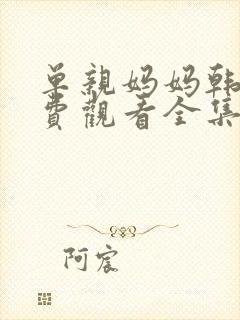 单亲妈妈韩
費觀看全集
阿宸